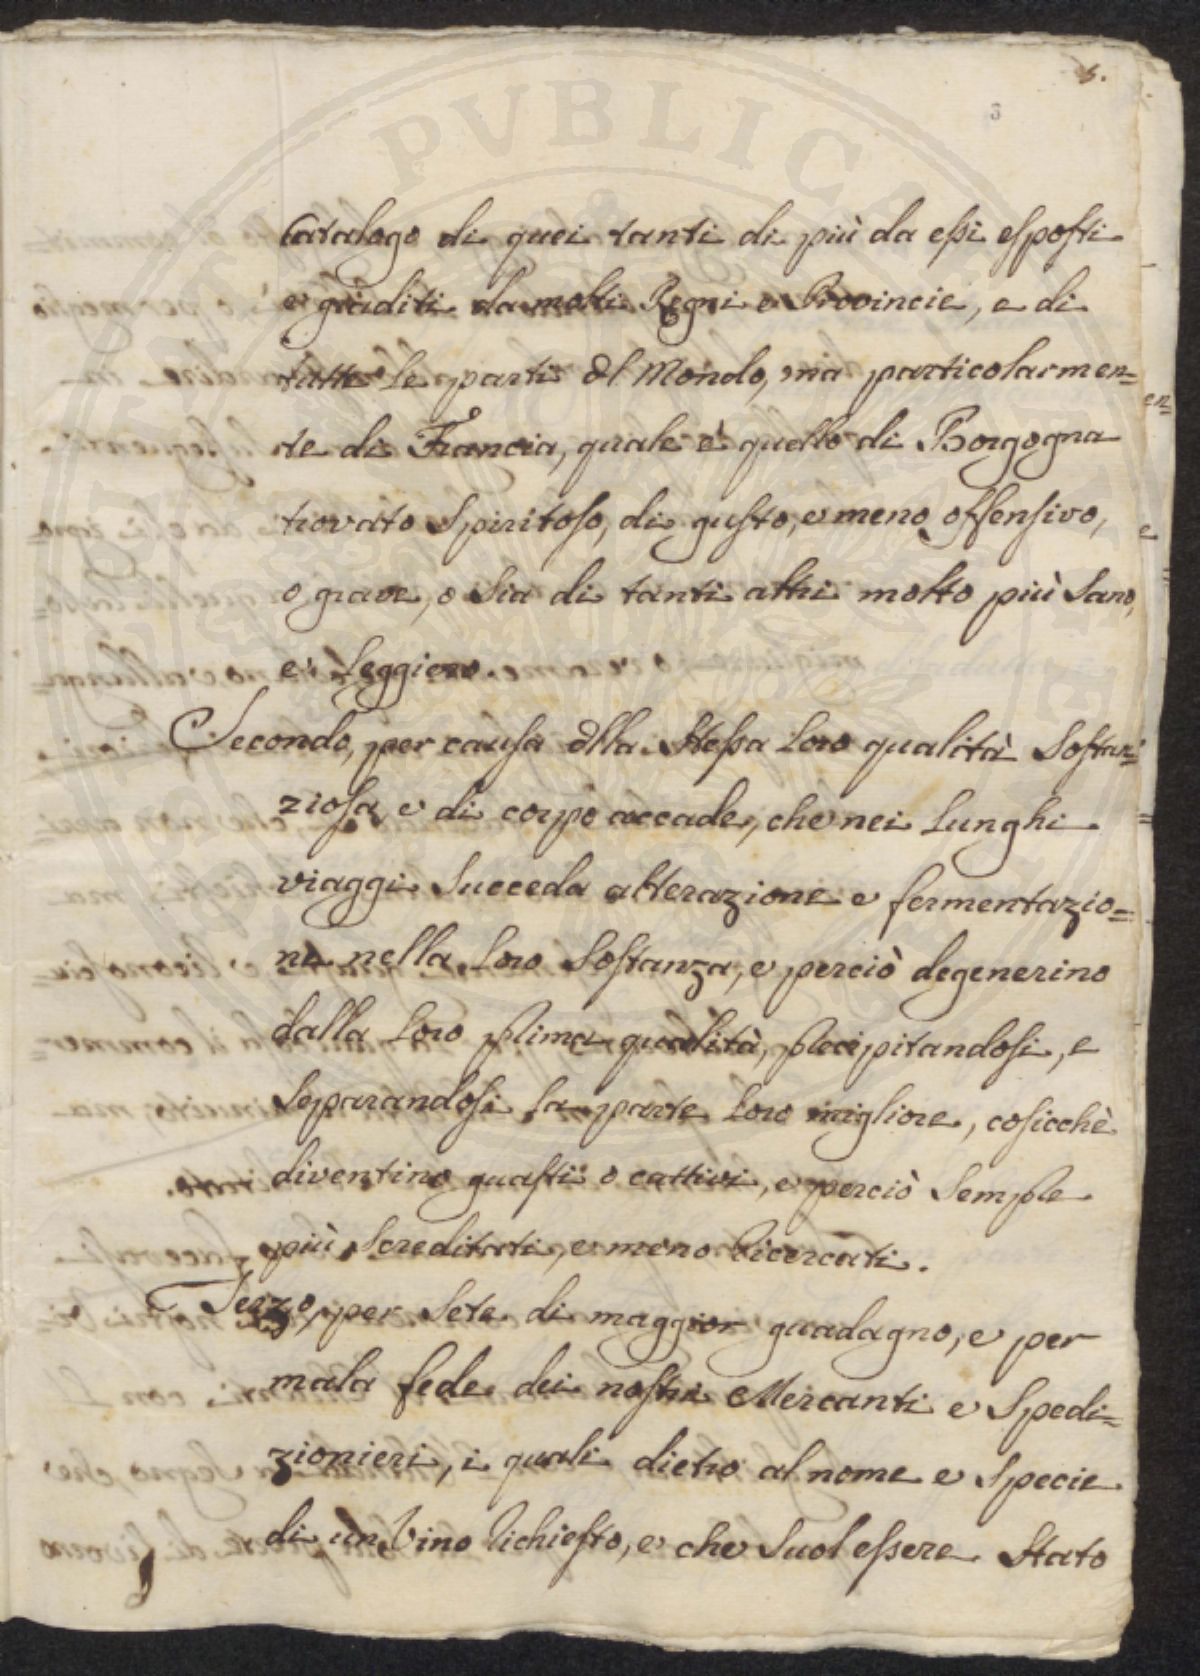 5.
3
Catalogo di quei tanti di più da essi esposti
e graditi da molti Regni e Provincie, e di
tutte le parti dl Mondo, ma particolarmen=
te di Francia, quale è quello di Borgogna
trovato Spiritoso, di gusto, e meno offensivo,
o grave, o sia di tanti altri molto più Sano,
e Leggiero.
Secondo, per causa dlla Stessa Loro qualità Sostan=
ziosa, e di corpo accade, che nei Lunghi
viaggi Succeda alterazione e fermentazio=
ne nella Loro Sostanza, e perciò degenerino
dalla Loro prima qualità, precipitandosi, e
Separandosi La parte Loro migliore, cosicchè
diventino guasti o cattivi, e perciò Sempre
più Screditati, e meno Ricercati.
Terzo, per Sete di maggior guadagno, e per
mala fede dei nostri Mercanti e Spedi=
zionieri, i quali dietro al nome e Specie
di un Vino Richiesto, e che Suol essere Stato